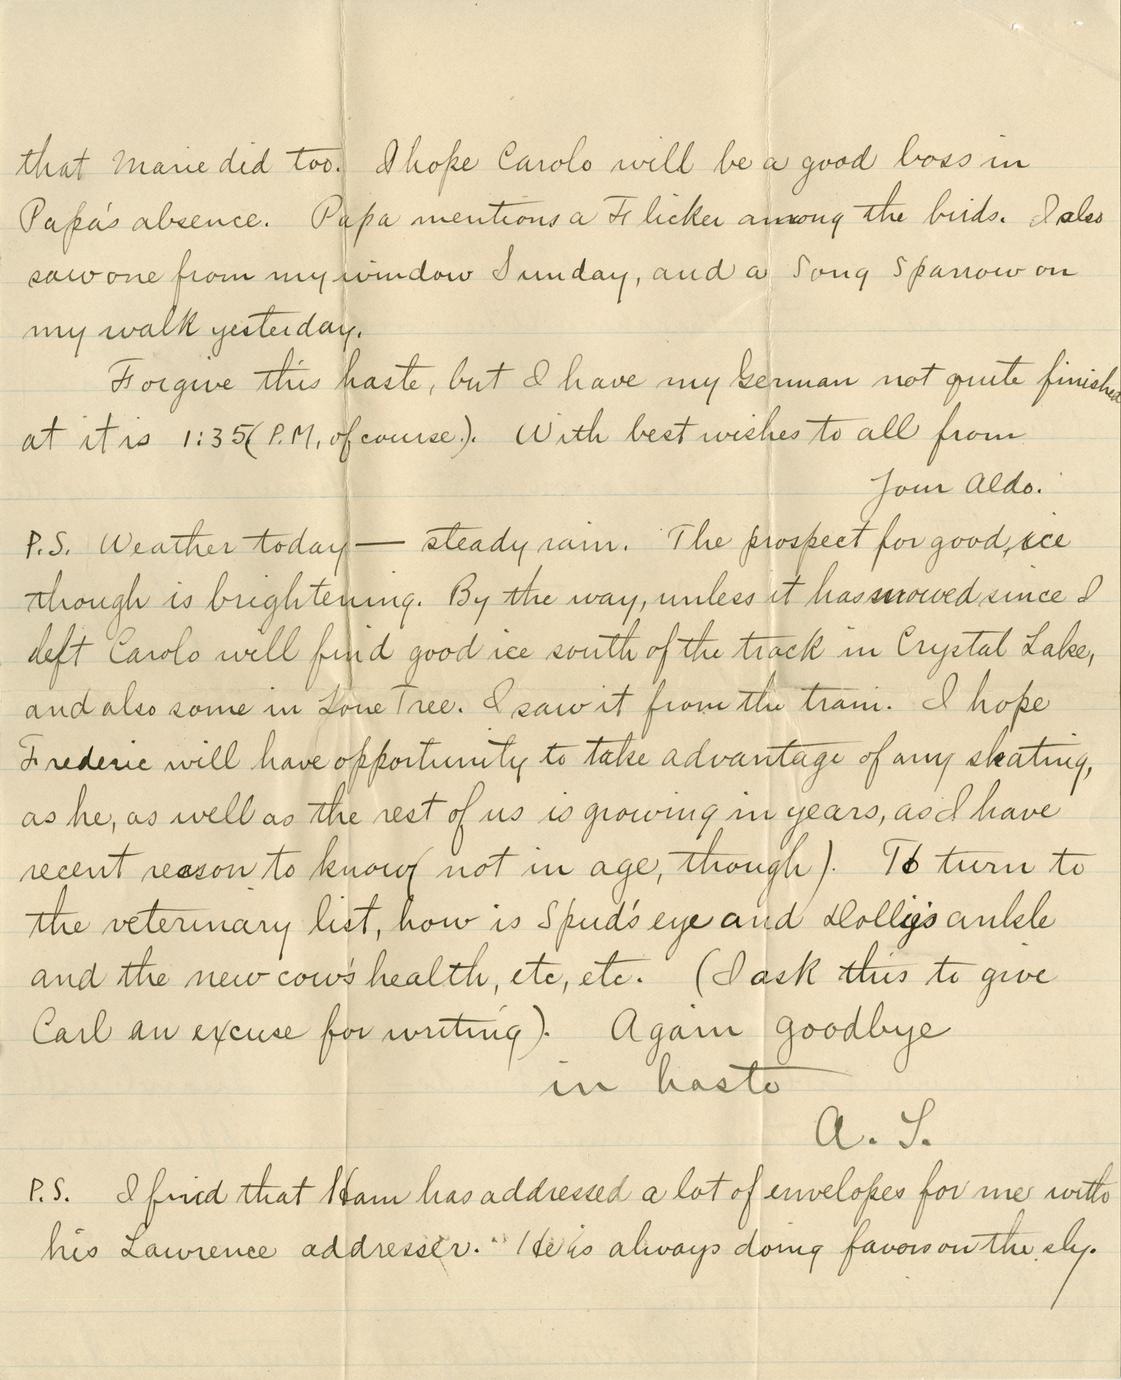 that Marie did too. I hope Carolo will be a good boss in
Papa's absence. Papa mentions a Flicker among the birds. I also
saw one from my window Sunday, and a Song Sparrow on
my walk yesterday.
Forgive this haste, but I have my German not quite finished
at it is 1:35 (P.M, of course.). With best wishes to all from
Your Aldo.
P.S. Weather today — steady rain. The prospect for good, ice
though is brightening. By the way, unless it has snowed, since I
left Carolo will find good ice south of the track in Crystal Lake,
and also some in Lone Tree. I saw it from the train. I hope
Frederic will have opportunity to take advantage of any skating,
as he, as well as the rest of us is growing in years, as I have
recent reason to know (not in age, though). To turn to
the veterinary list, how is Spud's eye and Dolly's ankle
and the new cow's health, etc, etc. (I ask this to give
Carl an excuse for writing). Again goodbye
in haste
A. L.
P.S. I find that Ham has addressed a lot of envelopes for me with
his Lawrence addresser. He is always doing favors on the sly.